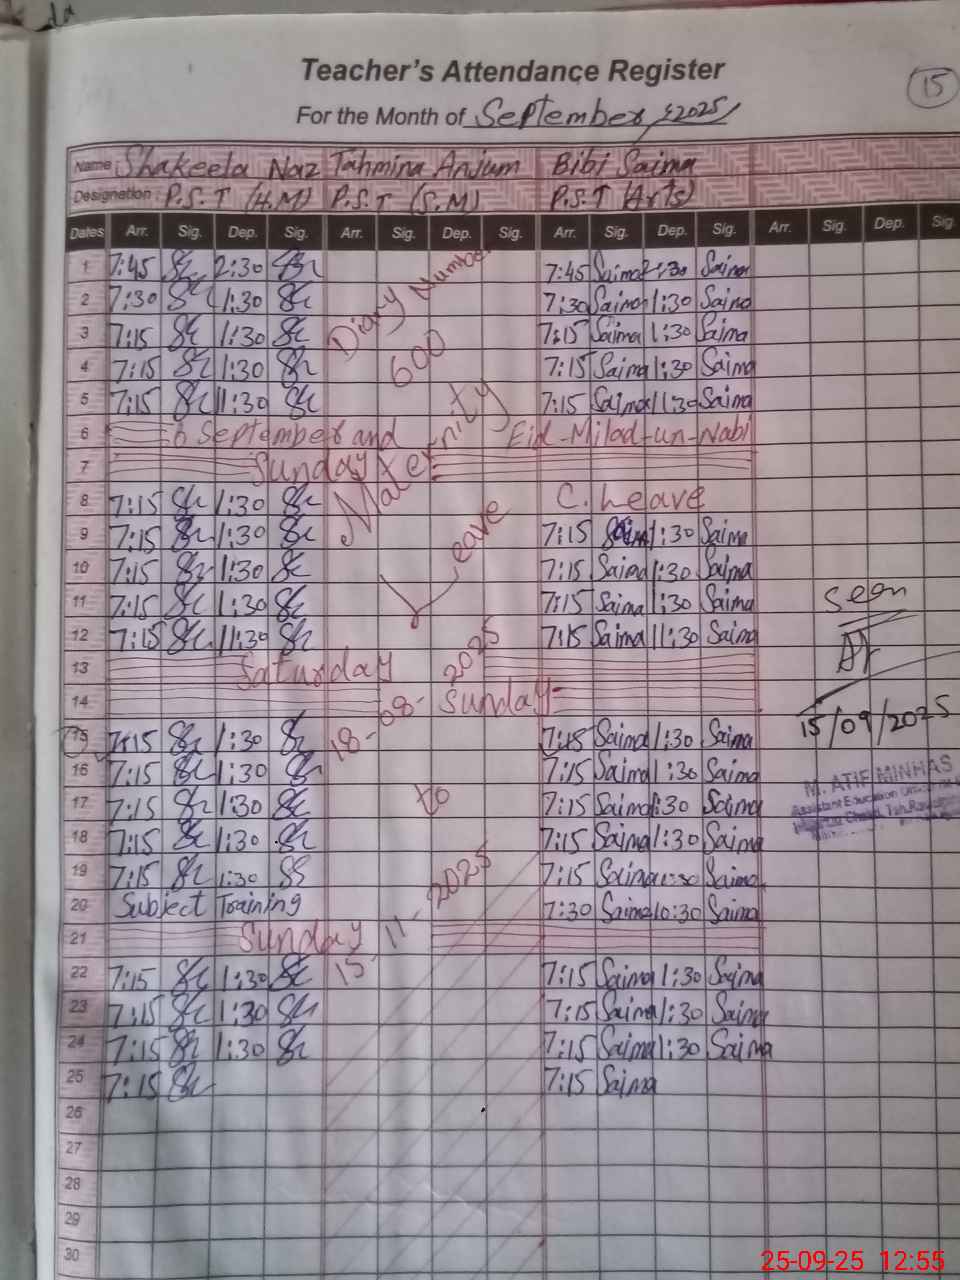 15
Teacher's Attendance Register
For the Month of September, 2025
Name Shakeela Naz Tahmina Anjum Bibi Saima
Designation: P.S.T (H.M) P.S.T (S.M) P.S.T (Arts)
Dates Arr. Sig. Dep. Sig. Arr. Sig. Dep. Sig. Arr. Sig. Dep. Sig. Arr. Sig. Dep. Sig
1 7:45 2:30 7:45 Saima 2:30 Saima
2 7:30 1:30 7:30 Saima 1:30 Saima
3 7:15 1:30 7:15 Saima 1:30 Saima
4 7:15 1:30 7:15 Saima 1:30 Saima
5 7:15 11:30 7:15 Saima 11:30 Saima
6 6 September and Eid-Milad-un-Nabi
7 Sunday
8 7:15 1:30 C. Leave
9 7:15 1:30 7:15 1:30 Saima
10 7:15 1:30 7:15 Saima 1:30 Saima
11 7:15 1:30 7:15 Saima 1:30 Saima
12 7:15 11:30 7:15 Saima 11:30 Saima
13 Saturday
14 Sunday
15 7:15 1:30 7:15 Saima 1:30 Saima
16 7:15 1:30 7:15 Saima 1:30 Saima
17 7:15 1:30 7:15 Saima 1:30 Saima
18 7:15 1:30 7:15 Saima 1:30 Saima
19 7:15 1:30 SS 7:15 Saima Saima
20 Subject Training 7:30 Saima 10:30 Saima
21 Sunday
22 7:15 1:30 7:15 Saima 1:30 Saima
23 7:15 1:30 7:15 Saima 1:30 Saima
24 7:15 1:30 7:15 Saima 1:30 Saima
25 7:15 7:15 Saima
26
27
28
29
30
Diary Number
600
Maternity
Leave
18-08-2025
to
15-11-2025
Seen
15/09/2025
M. ATIF MINHAS
Assistant Education
25-09-25 12:55